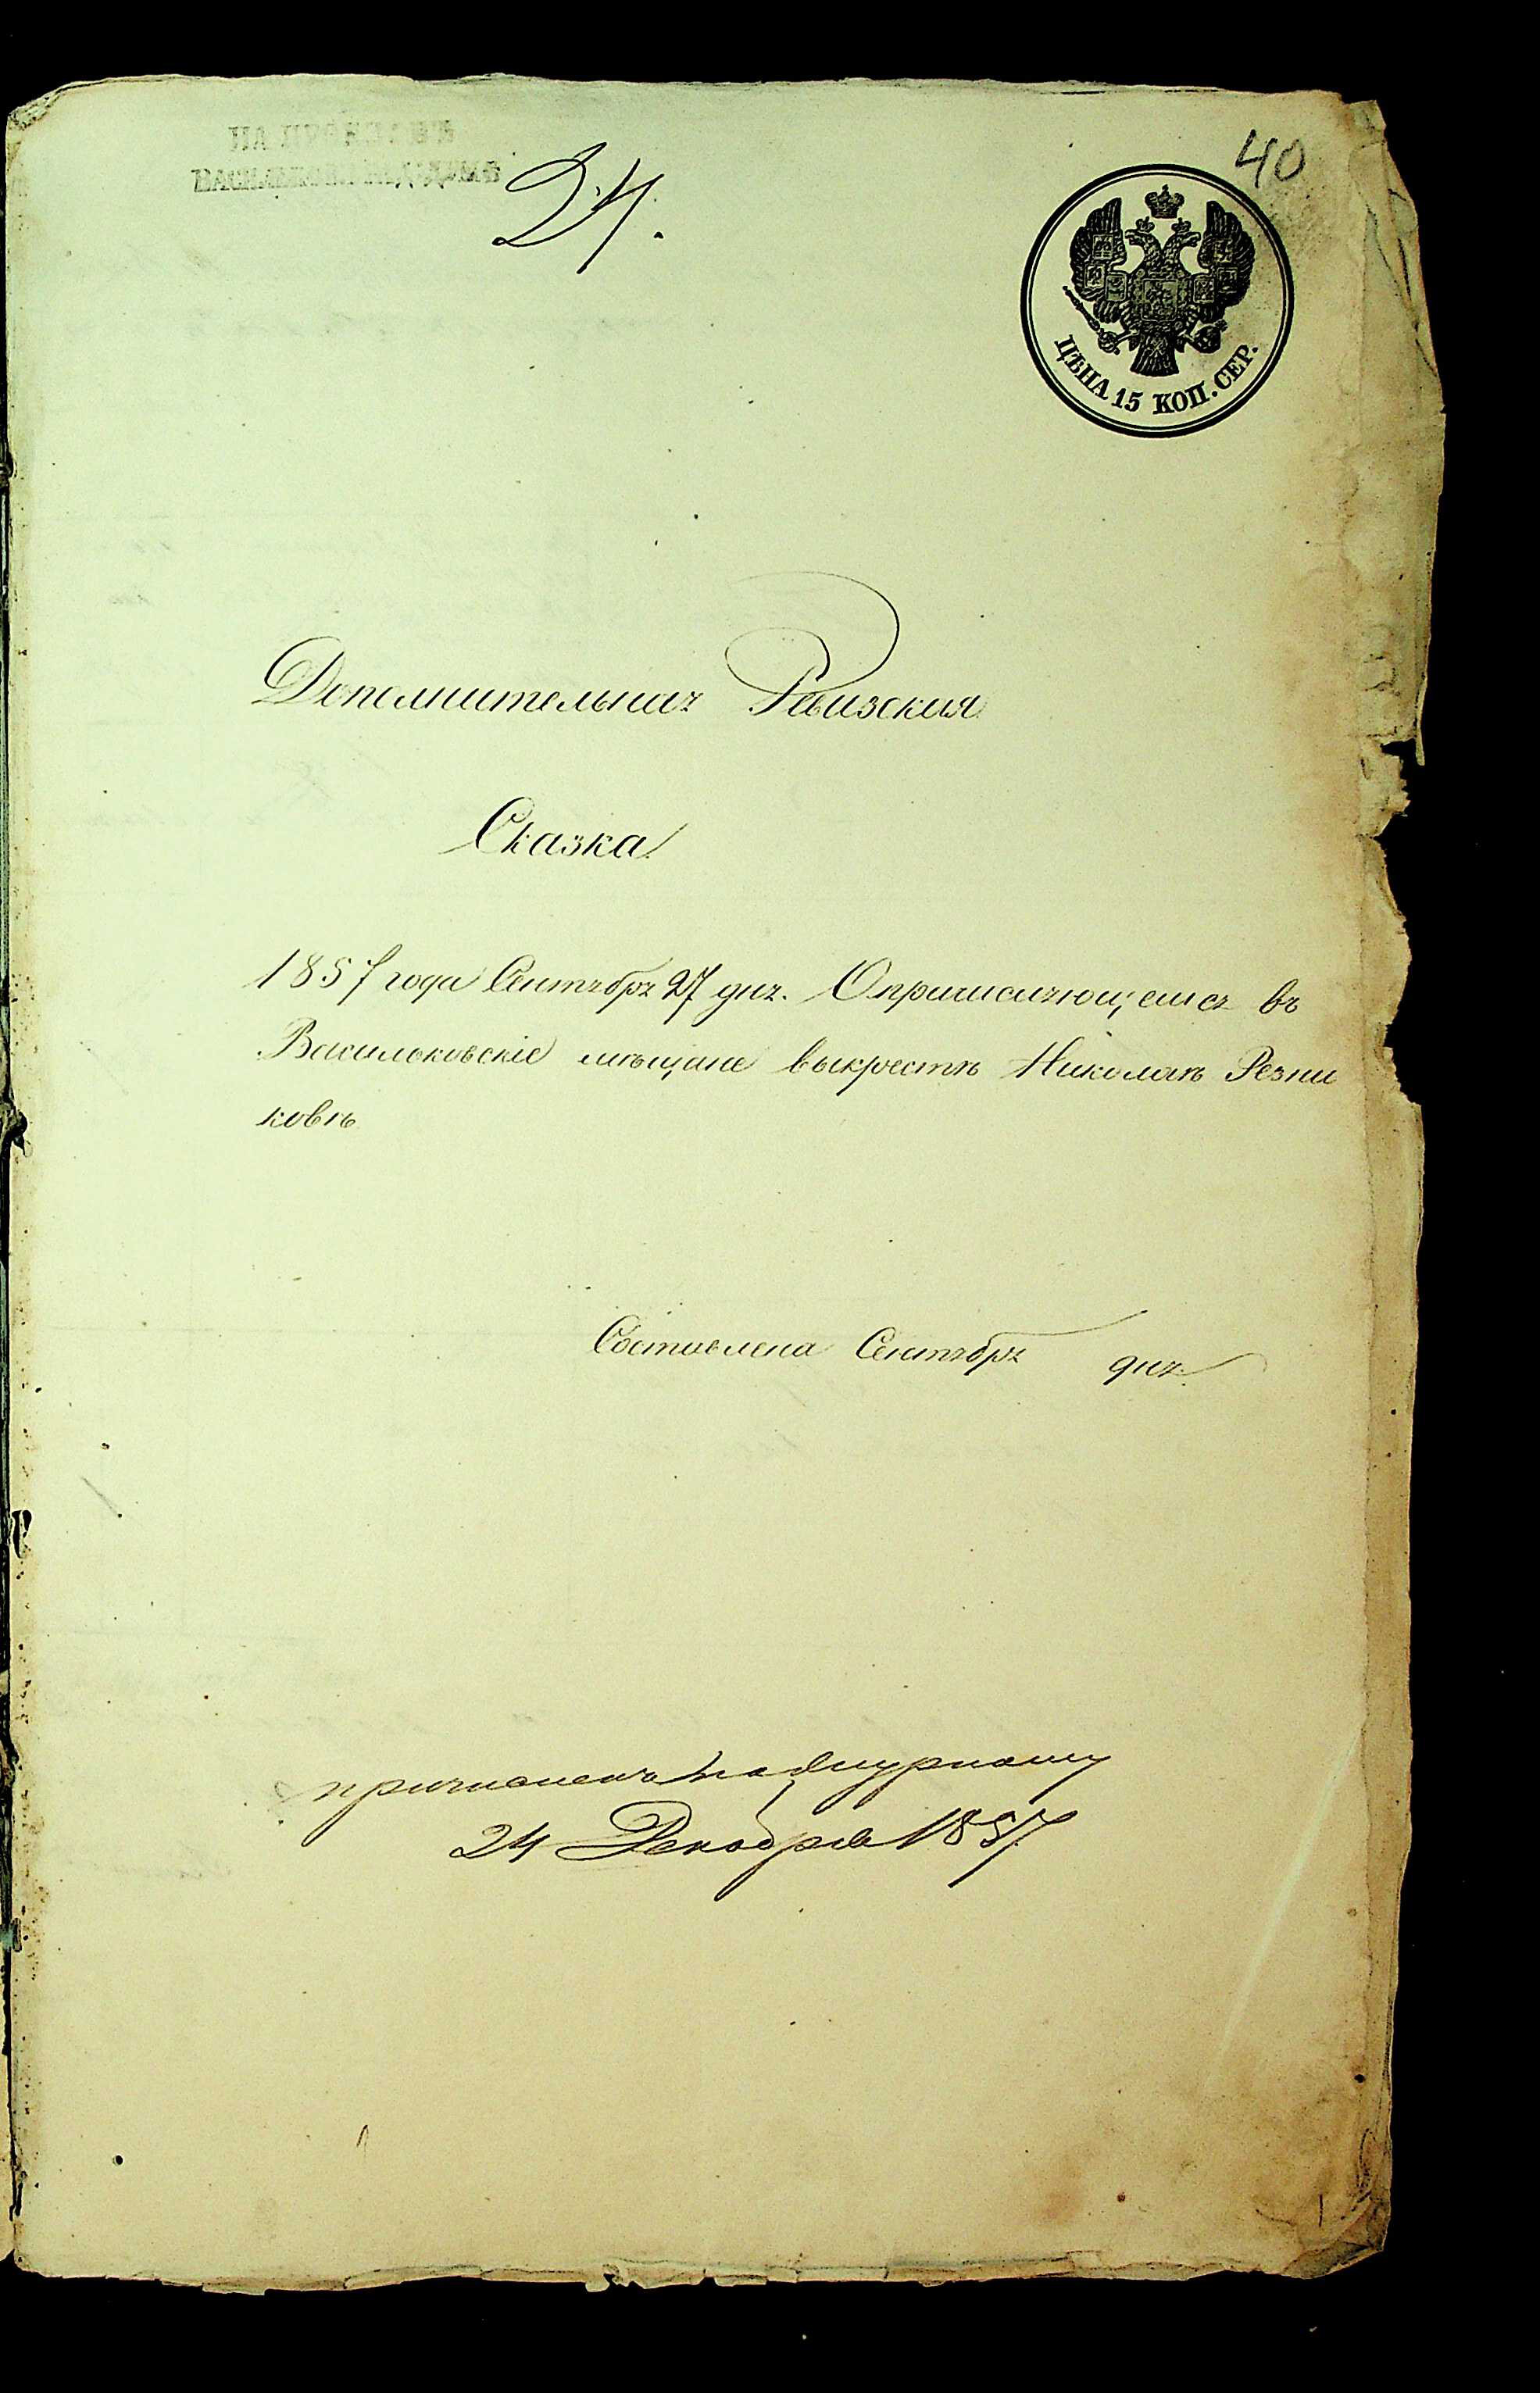 40
24.
ЦѢНА 15 КОП. СЕР.
Дополнительная Ревизская
Сказка
1857 года Сентября 27 дня. О причисляющемся въ
Васильковскіе мѣщане выкрестѣ Николаѣ Резни
ковѣ
Составлена Сентября дня
причисленъ по журналу
24 Декабря 1857